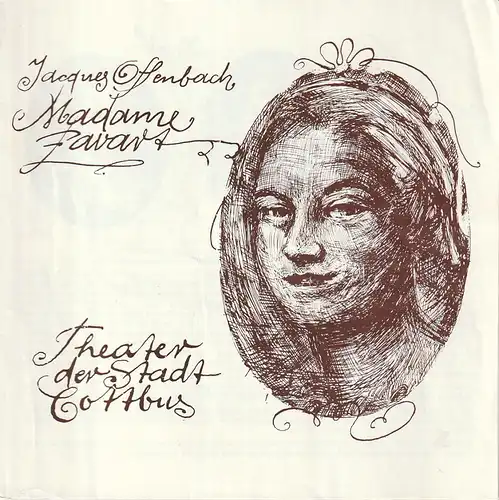 Jacques Offenbach
Madame
Favart
Theater
der Stadt
Cottbus